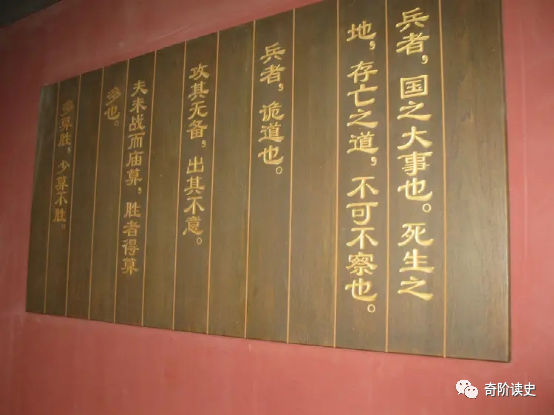 兵者，国之大事也。死生之
地，存亡之道，不可不察也。
兵者，诡道也。
攻其无备，出其不意。
夫未战而庙算，胜者得算
多也。
多算胜，少算不胜。
奇阶读史